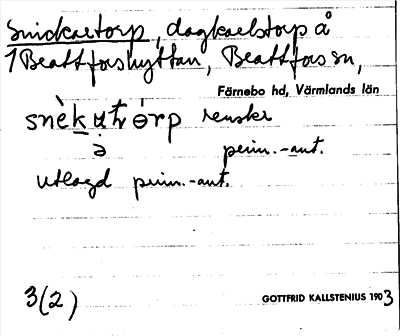 Snickartorp, dagkarlstorp å
1 Brattforshyttan, Brattfors sn,
Färnebo hd, Värmlands län
renskr
prim.-ant.
utlagd prim.-ant.
3(2)
GOTTFRID KALLSTENIUS 1903